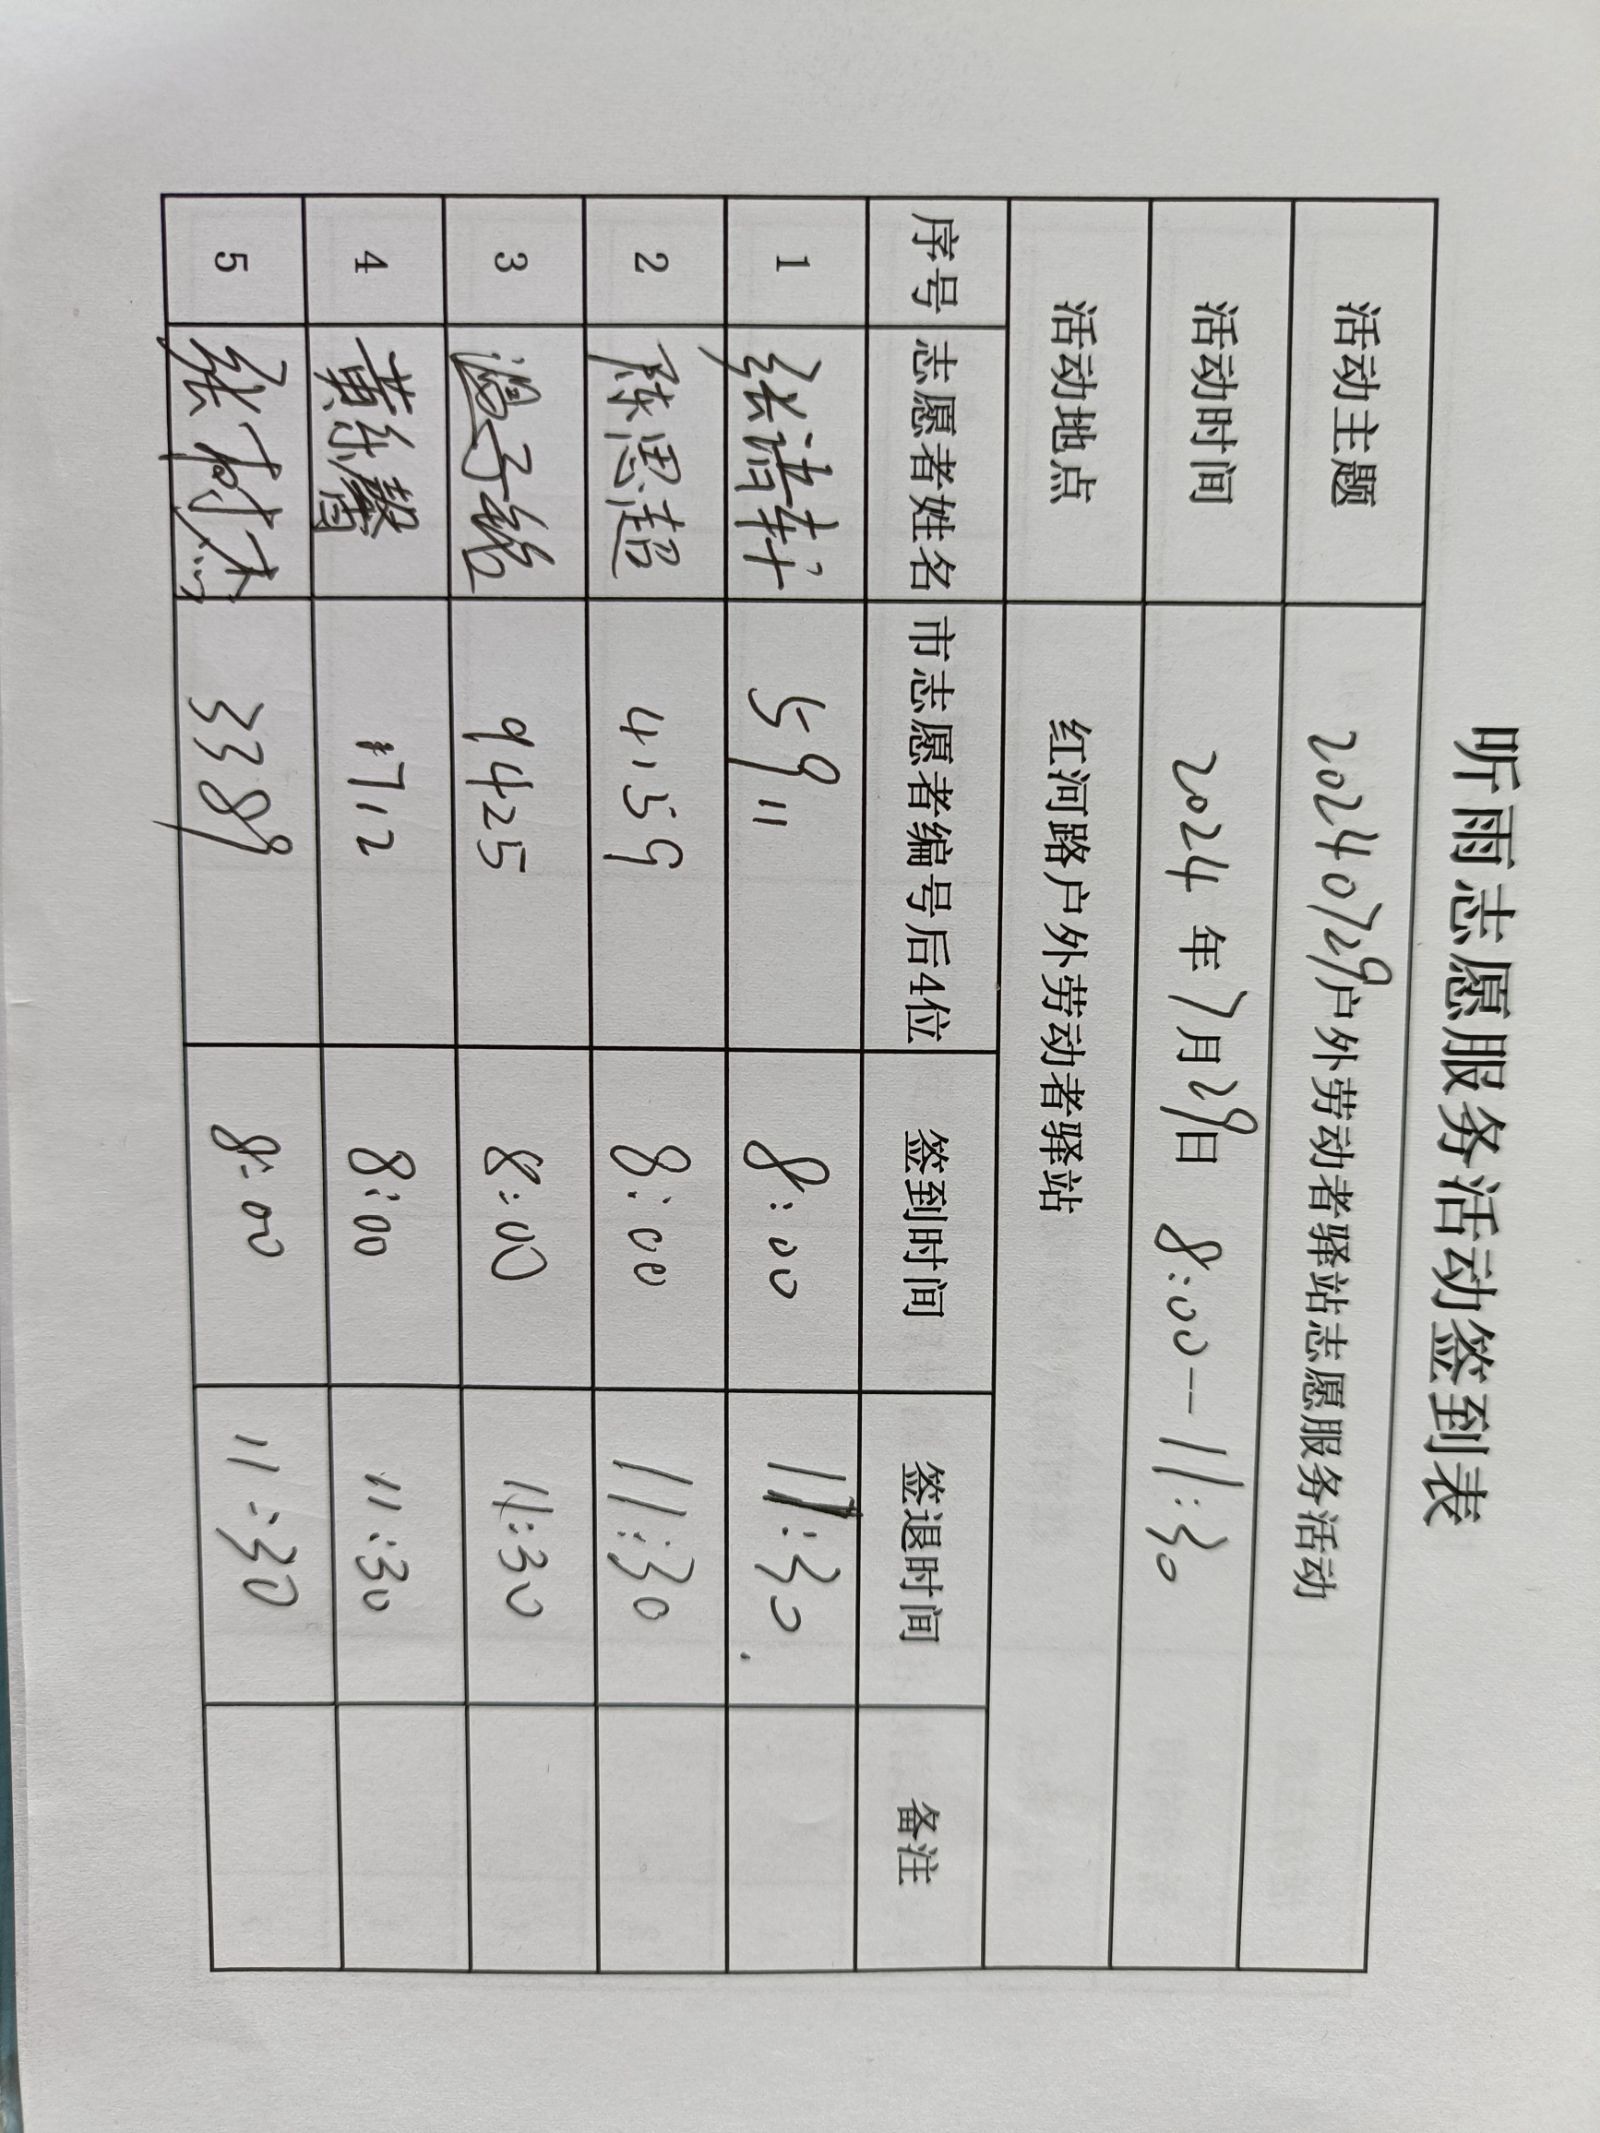 听雨志愿服务活动签到表
活动主题 20240729户外劳动者驿站志愿服务活动
活动时间 2024年7月29日 8:00--11:30
活动地点 红河路户外劳动者驿站
序号 志愿者姓名 市志愿者编号后4位 签到时间 签退时间 备注
1 张诗轩 5911 8:00 11:30
2 陈思超 4159 8:00 11:30
3 子铭 9425 8:00 11:30
4 黄乐馨 1712 8:00 11:30
5 张树杰 3389 8:00 11:30